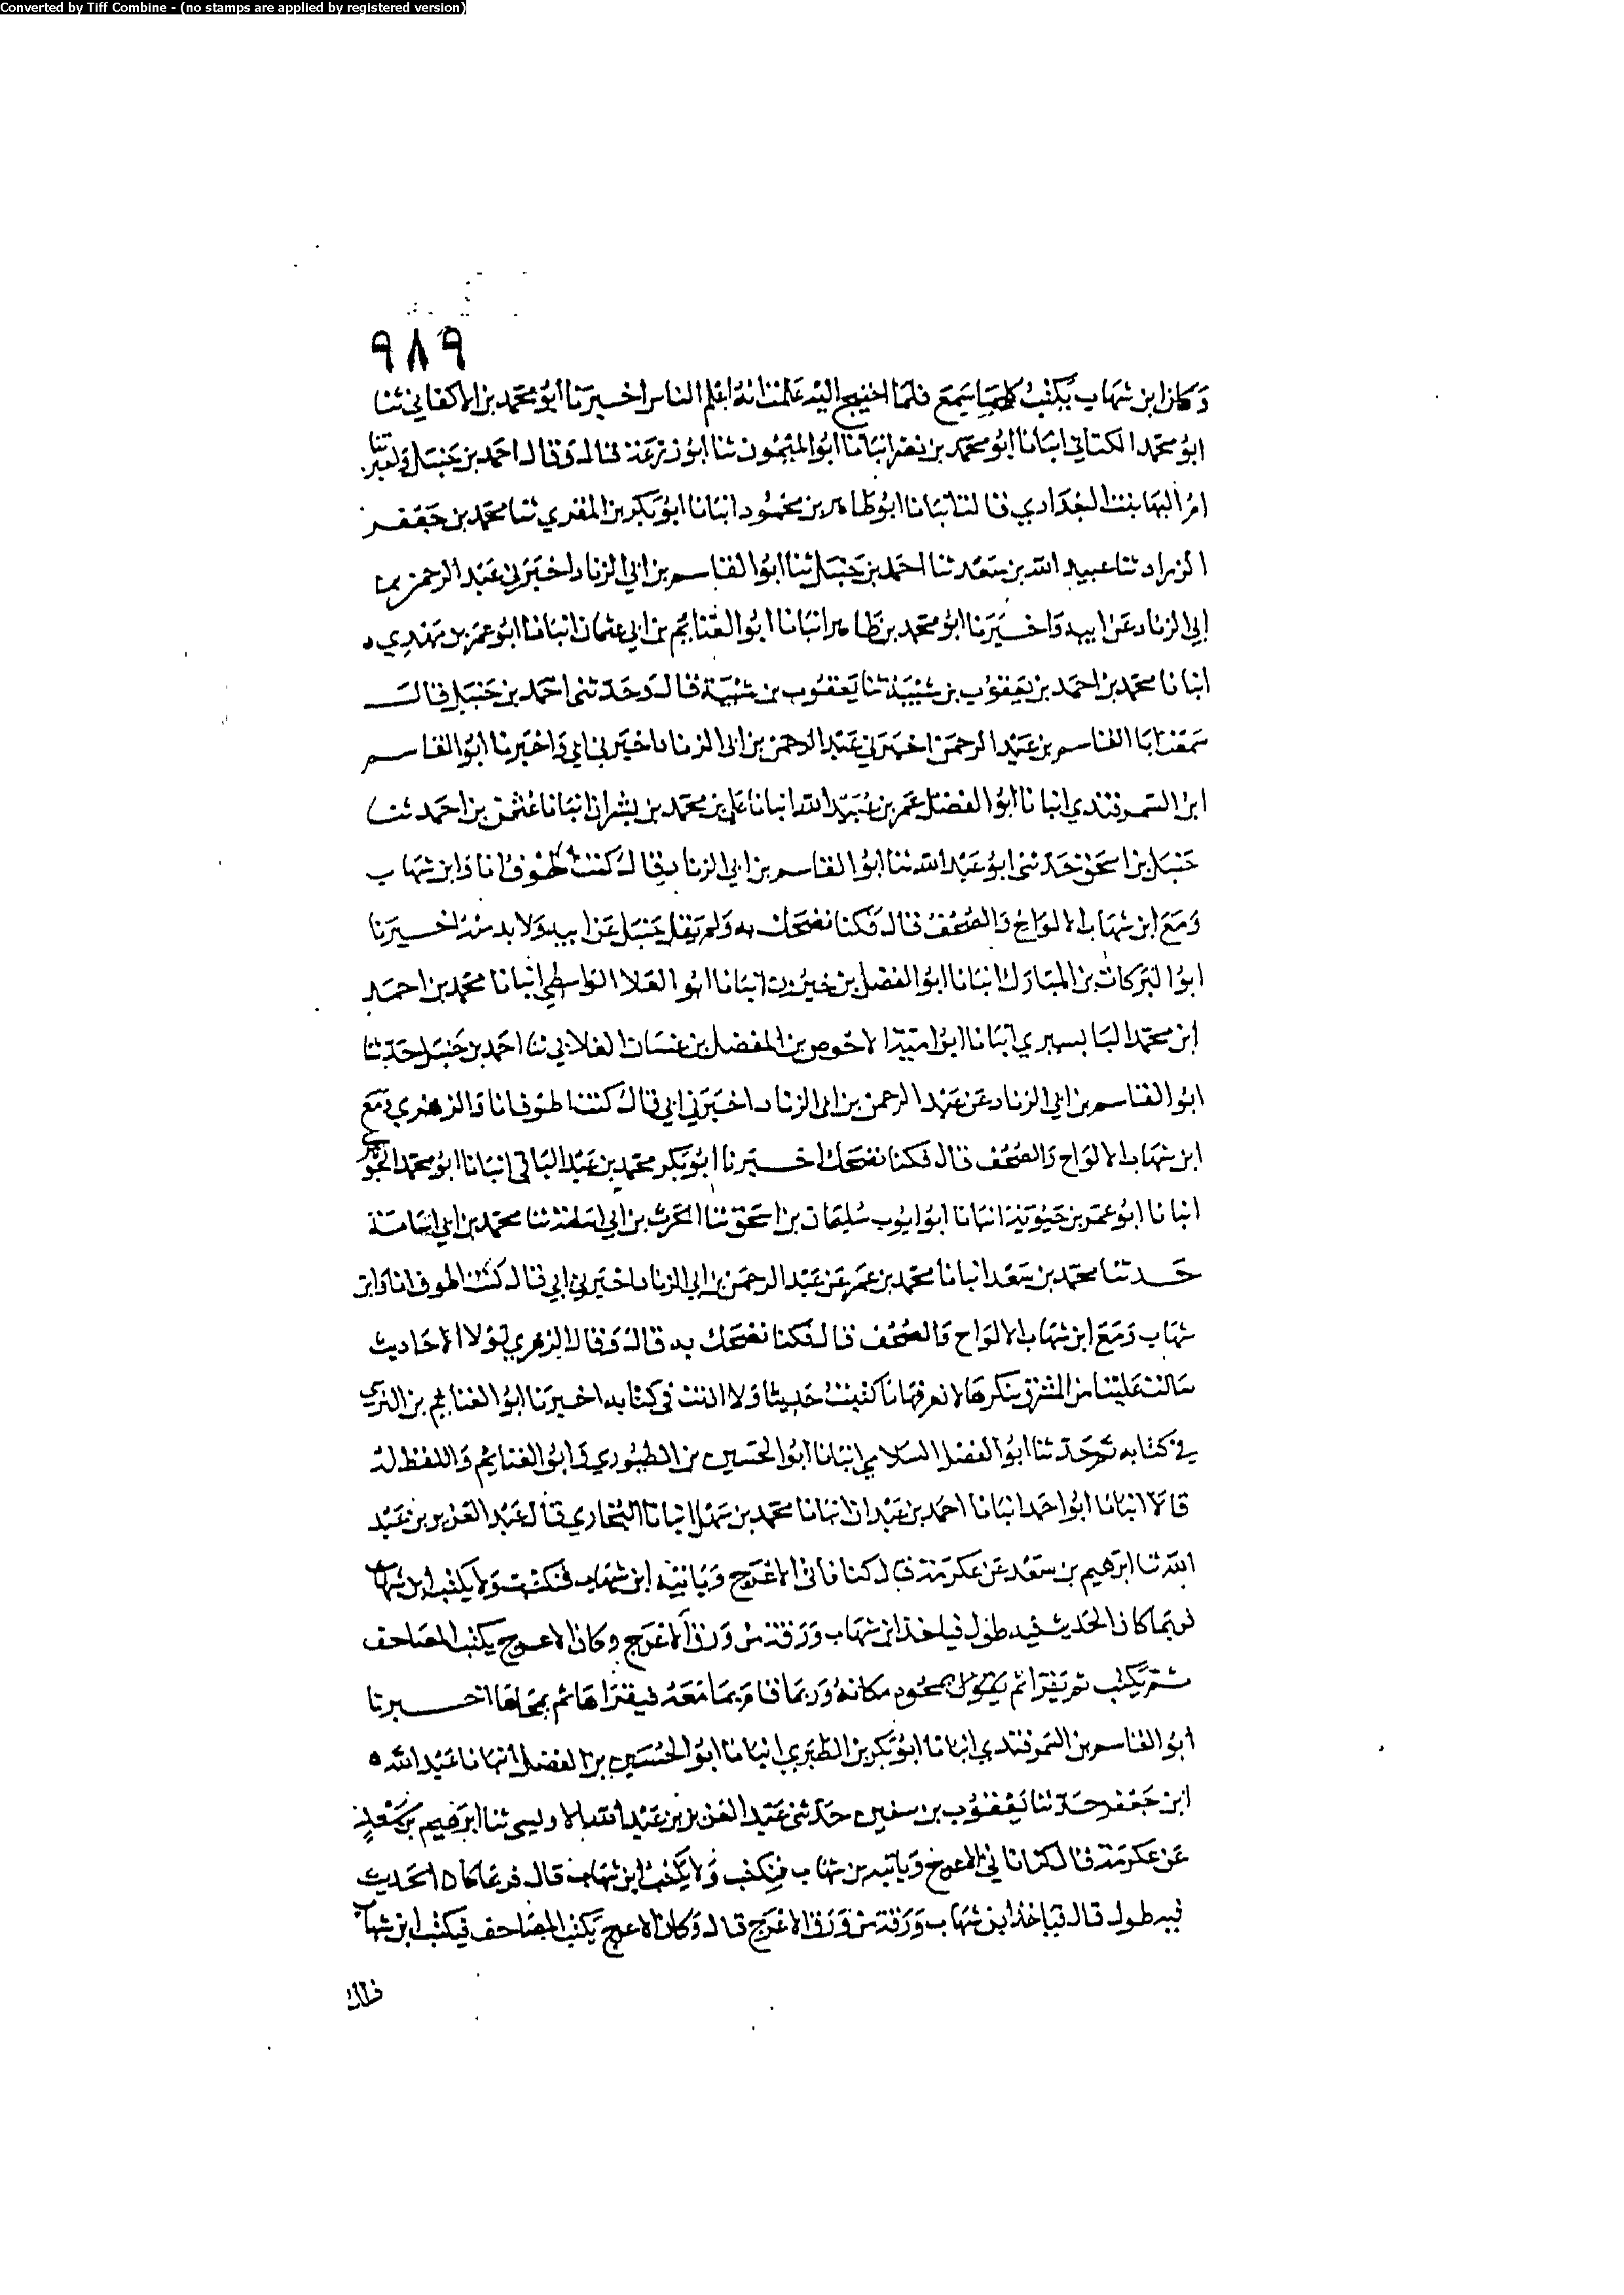 Converted by Tiff Combine - (no stamps are applied by registered version)
٩٨٩
وكان ابن شهاب يكتب كلما سمع فلما احتيج اليه علمت انه اعلم الناس اخبرنا ابو محمد بن الاكفاني ثنا
ابو محمد الكتاني انبانا ابو محمد بن نصر انبانا ابو الميمون ثنا ابو زرعة قال وقال احمد بن حنبل
ام البها بنت البغدادي قالت انبانا ابو طاهر بن محمود انبانا ابو بكر بن المقري ثنا محمد بن جعفر
الزراد ثنا عبيد الله بن سعد ثنا احمد بن حنبل ثنا ابو القاسم بن ابي الزناد اخبرني عبد الرحمن بن
ابي الزناد عن ابيه واخبرنا ابو محمد بن طاهر انبانا ابو الغنايم بن ابي عثمان انبانا ابو عمر بن مهدي
انبانا محمد بن احمد بن يعقوب بن شيبة ثنا يعقوب بن شيبة قال وحدثني احمد بن حنبل قال
سمعت ابا القاسم بن عبد الرحمن اخبرني عبد الرحمن بن ابي الزناد اخبرني ابي واخبرنا ابو القاسم
ابن السمرقندي انبانا ابو الفضل عمر بن عبيد الله انبانا علي بن محمد بن بشران انبانا عثمن بن احمد ثنا
حنبل بن اسحق حدثني ابو عبد الله ثنا ابو القاسم بن ابي الزناد قال كنت اطوف انا وابن شهاب
ومع ابن شهاب الالواح والصحف قال فكنا نضحك به ولم يقل حنبل عن ابيه ولا بد منه اخبرنا
ابو البركات بن المبارك انبانا ابو الفضل بن خيرون انبانا ابو العلا الواسطي انبانا محمد بن احمد
ابن محمد البابسيري انبانا ابو امية الاحوص بن المفضل بن غسان الغلابي ثنا احمد بن حنبل حدثنا
ابو القاسم بن ابي الزناد عن عبد الرحمن بن ابي الزناد اخبرني ابي قال كنت اطوف انا والزهري ومع
ابن شهاب الالواح والصحف قال فكنا نضحك اخبرنا ابو بكر محمد بن عبد الباقي انبانا ابو محمد الجوهري
انبانا ابو عمر بن حيوية انبانا ابو ايوب سليمان بن اسحق ثنا الحرث بن ابي اسامة ثنا محمد بن ابي اسامة
حدثنا محمد بن سعد انبانا محمد بن عمر عن عبد الرحمن بن ابي الزناد اخبرني ابي قال كنت اطوف انا وابن
شهاب ومع ابن شهاب الالواح والصحف قال فكنا نضحك به قال وقال الزهري لولا احاديث
سالت علينا من المشرق ننكرها لا نعرفها ما كتبت حديثا ولا اذنت في كتابه اخبرنا ابو الغنايم بن النرسي
في كتابه ثم حدثنا ابو الفضل السلامي انبانا ابو الحسين بن الطيوري وابو الغنايم واللفظ له
قالا انبانا ابو احمد انبانا احمد بن عبدان انبانا محمد بن سهل انبانا البخاري قال عبد العزيز بن عبد
الله ثنا ابرهيم بن سعد عن عكرمة قال كنا ناتي الاعرج وياتيه ابن شهاب فنكتب ولا يكتب ابن شهاب
فربما كان الحديث فيه طول فياخذ ابن شهاب ورقة من ورق الاعرج وكان الاعرج يكتب المصاحف
ثم يكتب ثم يقرا ثم يمحوه مكانه وربما قام بها معه فيقراها ثم يمحاها اخبرنا
ابو القاسم بن السمرقندي انبانا ابو بكر بن الطبري انبانا ابو الحسين بن الفضل انبانا عبد الله
ابن جعفر حدثنا يعقوب بن سفين حدثني عبد العزيز بن عبد الله الاويسي ثنا ابرهيم بن سعد
عن عكرمة قال كنا ناتي الاعرج وياتيه بن شهاب فنكتب ولا يكتب ابن شهاب قال فربما كان الحديث
فيه طول قال فياخذ ابن شهاب ورقة من ورق الاعرج قال وكان الاعرج يكتب المصاحف فيكتب ابن شهاب
ذلك